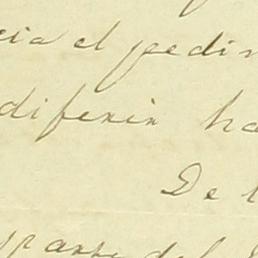 cia el pedim
diferir ha
De l
parte del